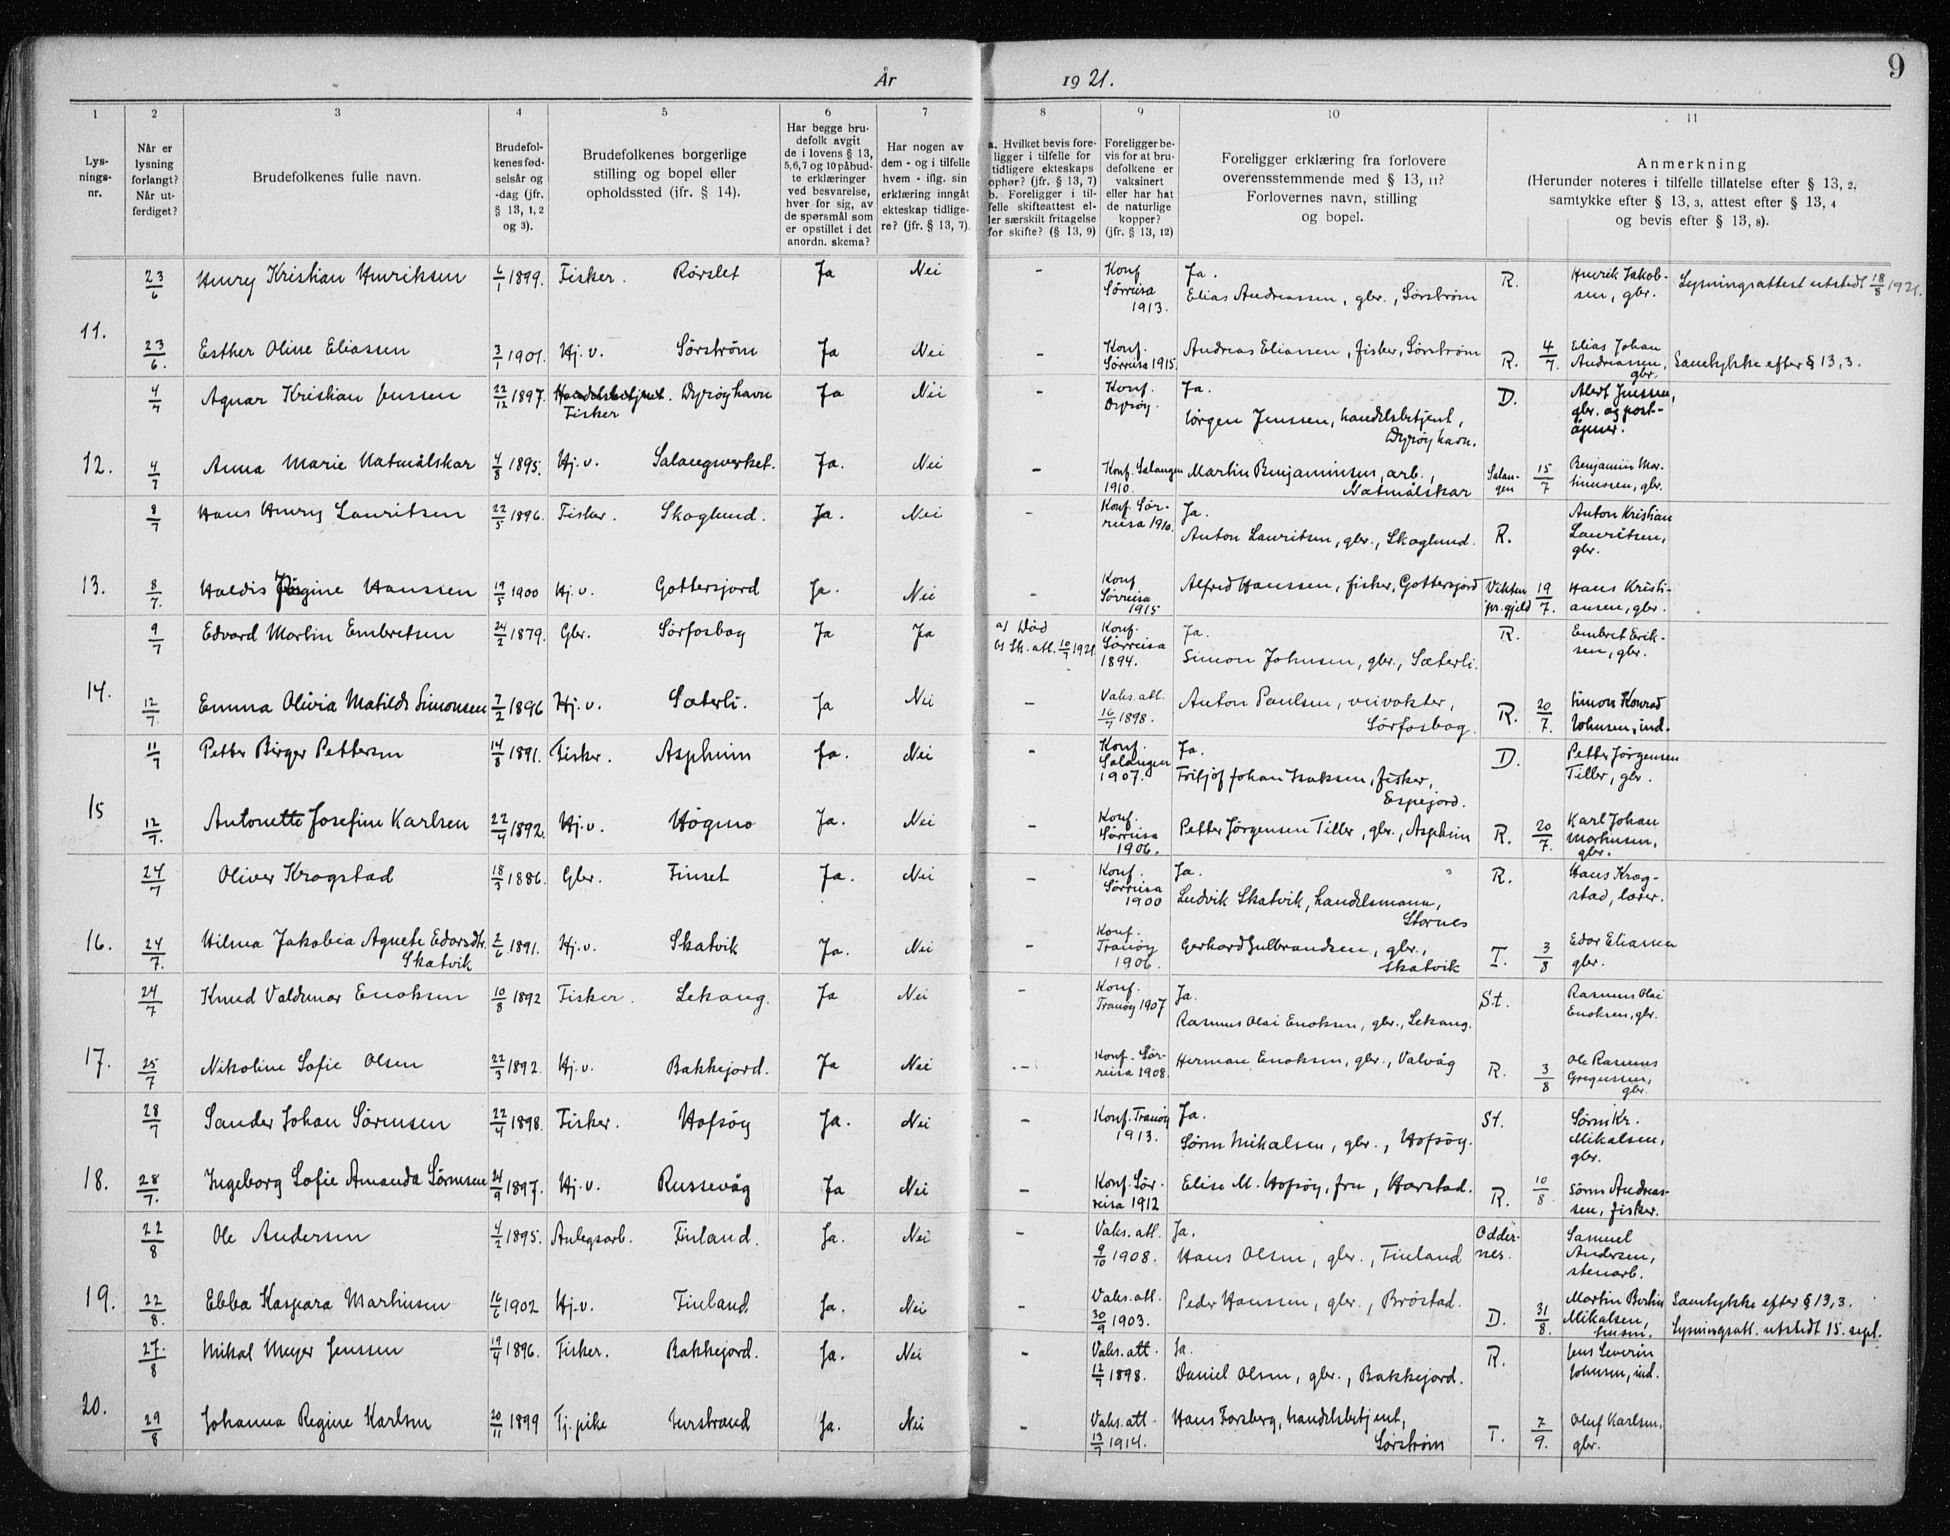 År 1921.
9
1 2 3 4 5 6 7 8 9 10 11
Lysningsnr.
Når er lysning forlangt? Når utferdiget?
Brudefolkenes fulle navn.
Brudefolkenes fødselsår og -dag (jfr. § 13, 1, 2 og 3).
Brudefolkenes borgerlige stilling og bopel eller opholdssted (ifr. § 14).
Har begge brudefolk avgit de i lovens § 13, 5,6,7 og 10 påbudte erklæringer ved besvarelse, hver for sig, av de spørsmål som er opstillet i det anordn. skema?
Har nogen av dem - og i tilfelle hvem - iflg. sin erklæring inngåt ekteskap tidligere? (jfr. § 13, 7).
a. Hvilket bevis foreligger i tilfelle for tidligere ekteskaps ophør? (jfr. § 13, 7)
b. Foreligger i tilfelle skifteattest eller særskilt fritagelse for skifte? (§ 13, 9)
Foreligger bevis for at brudefolkene er vaksinert eller har hat de naturlige kopper? (jfr. § 13, 12)
Foreligger erklæring fra forlovere overensstemmende med § 13, 11? Forlovernes navn, stilling og bopel.
Anmerkning
(Herunder noteres i tilfelle tillatelse efter § 13, 2, samtykke efter § 13, 3, attest efter § 13, 4 og bevis efter § 13, 8).
23/6 Henry Kristian Henriksen 6/1 1899. Fisker. Rørslet Ja Nei - Konf Sørreisa 1913. Ja. Elias Andreassen, gbr., Sørstrøm R. Henrik Jakobsen, gbr. Lysningsattest utstedt 18/8 1921.
11.
23/6. Esther Oline Eliassen 3/1 1901. Hj.v. Sørstrøm Ja Nei - Konf. Sørreisa 1915. Andreas Eliassen, fisker, Sørstrøm R. 4/7 Elias Johan Andreassen, gbr. Samtykke efter § 13,3.
4/7 Agnar Kristian Jenssen 22/12 1897. Handelsbetjent. Fisker Dyrøyhavn Ja Nei - Konf. Dyrøy. Ja. Jørgen Jenssen, handelsbetjent, Dyrøyhavn. D. Albert Jenssen, gbr. og poståpner.
12.
4/7 Anna Marie Natmålskar 4/8 1895. Hj.v. Salangsverket. Ja. Nei - Konf. Salangen 1910. Martin Benjaminsen, arb., Natmålskar Salangen 15/7 Benjamin Martinussen, gbr.
8/7 Hans Henry Lauritsen 22/5 1896. Fisker. Skoglund. Ja. Nei - Konf. Sørreisa 1910. Ja. Anton Lauritsen, gbr., Skoglund. R. Anton Kristian Lauritsen, gbr.
13.
8/7. Haldis Jørgine Hanssen 19/5 1900 Hj.v. Gottersjord Ja. Nei - Konf Sørreisa 1915 Alfred Hanssen, fisker, Gottersjord Vikten pr.gjeld 19/7. Hans Kristiansen, gbr.
9/7 Edvard Martin Embretsen 24/2 1879. Gbr. Sørfosbog Ja Ja a) Død b) Sk. att. 10/7 1921 Konf. Sørreisa 1894. Ja. Simon Johnsen, gbr., Sæterli. R. Embret Eriksen, gbr.
14.
12/7. Emma Olivia Matilde Simonsen 7/2 1896 Hj.v. Sæterli. Ja Nei - Vaks. att. 16/7 1898. Anton Paulsen, veivokter, Sørfosbog. R. 20/7. Simon Konrad Johnsen, ind.
11/7 Petter Birger Pettersen 14/8 1891. Fisker. Aspheim Ja. Nei - Konf. Salangen 1907. Ja. Fritjof Johan Isaksen, fisker, Espejord. D. Petter Jørgensen Tiller, gbr.
15
12/7. Antonette Josefine Karlsen 22/4 1892. Hj.v. Høgmo Ja. Nei - Konf. Sørreisa 1906. Petter Jörgensen Tiller, gbr., Asphim R. 20/7. Karl Johan Martinsen, gbr.
24/7 Oliver Krogstad 18/3 1886. Gbr. Finset Ja. Nei - Konf. Sørreisa 1900 Ja. Ludvik Skatvik, handelsmann, Stornes R. Hans Krogstad, lærer.
16.
24/7. Hilma Jakobia Agnete Edorsdtr. Skatvik 2/6 1891. Hj.v. Skatvik Ja. Nei - Konf. Tranøy 1906. Gerhard Gulbrandsen, gbr., Skatvik T. 3/8 Edor Eliassen gbr.
24/7 Knud Valdemar Enoksen 10/8 1892 Fisker. Lekang. Ja Nei - Konf. Tranøy 1907 Ja. Rasmus Olai Enoksen, gbr., Lekang. St. Rasmus Olai Enoksen, gbr.
17.
25/7 Nikoline Sofie Olsen 22/3 1892. Hj.v. Bakkejord. Ja Nei - Konf. Sørreisa 1908. Herman Enoksen, gbr., Valvåg R. 3/8 Ole Rasmus Gregussen, gbr.
28/7 Sander Johan Sørensen 22/4 1898. Fisker. Hofsøy Ja. Nei - Konf. Tranøy 1913. Ja. Sørm Mikalsen, gbr., Hofsøy. St. Sørm Kr. Mikalsen, gbr.
18.
28/7. Ingeborg Sofie Amanda Sørensen 24/9 1897. Hj.v. Russevåg Ja Nei - Konf. Sørreisa 1912 Elise M. Hofsøy, fru, Harstad. R. 10/8. Sørm Andreassen, fisker.
22/8 Ole Andersen 4/2 1895. Anlegsarb. Finland. Ja. Nei - Vaks. att. 9/10 1908. Ja. Hans Olsen, gbr., Finland Oddernes. Samuel Andersen, stenarb.
19.
22/8. Ebba Kaspara Martinsen 16/6 1902 Hj.v. Finland Ja. Nei - Vaks. att. 30/9 1903. Peder Hanssen, gbr., Brøstad. D. 31/8. Martin Bertin Mikalsen, husm. Samtykke efter § 13,3. Lysningsatt. utstedt 15. sept.
27/8 Mikal Meyer Jenssen 19/4 1896. Fisker. Bakkejord. Ja. Nei Vaks. att. 12/7 1898. Ja. Daniel Olsen, gbr., Bakkejord. R. Jens Severin Johnsen, ind.
20.
29/8 Johanna Regine Karlsen 20/11 1899 Tj.pike Ja. Nei - Vaks. att. 13/7 1914. Hans Forsberg, handelsbetjent, Sørstrøm T. 7/9. Oluf Karlsen, gbr.